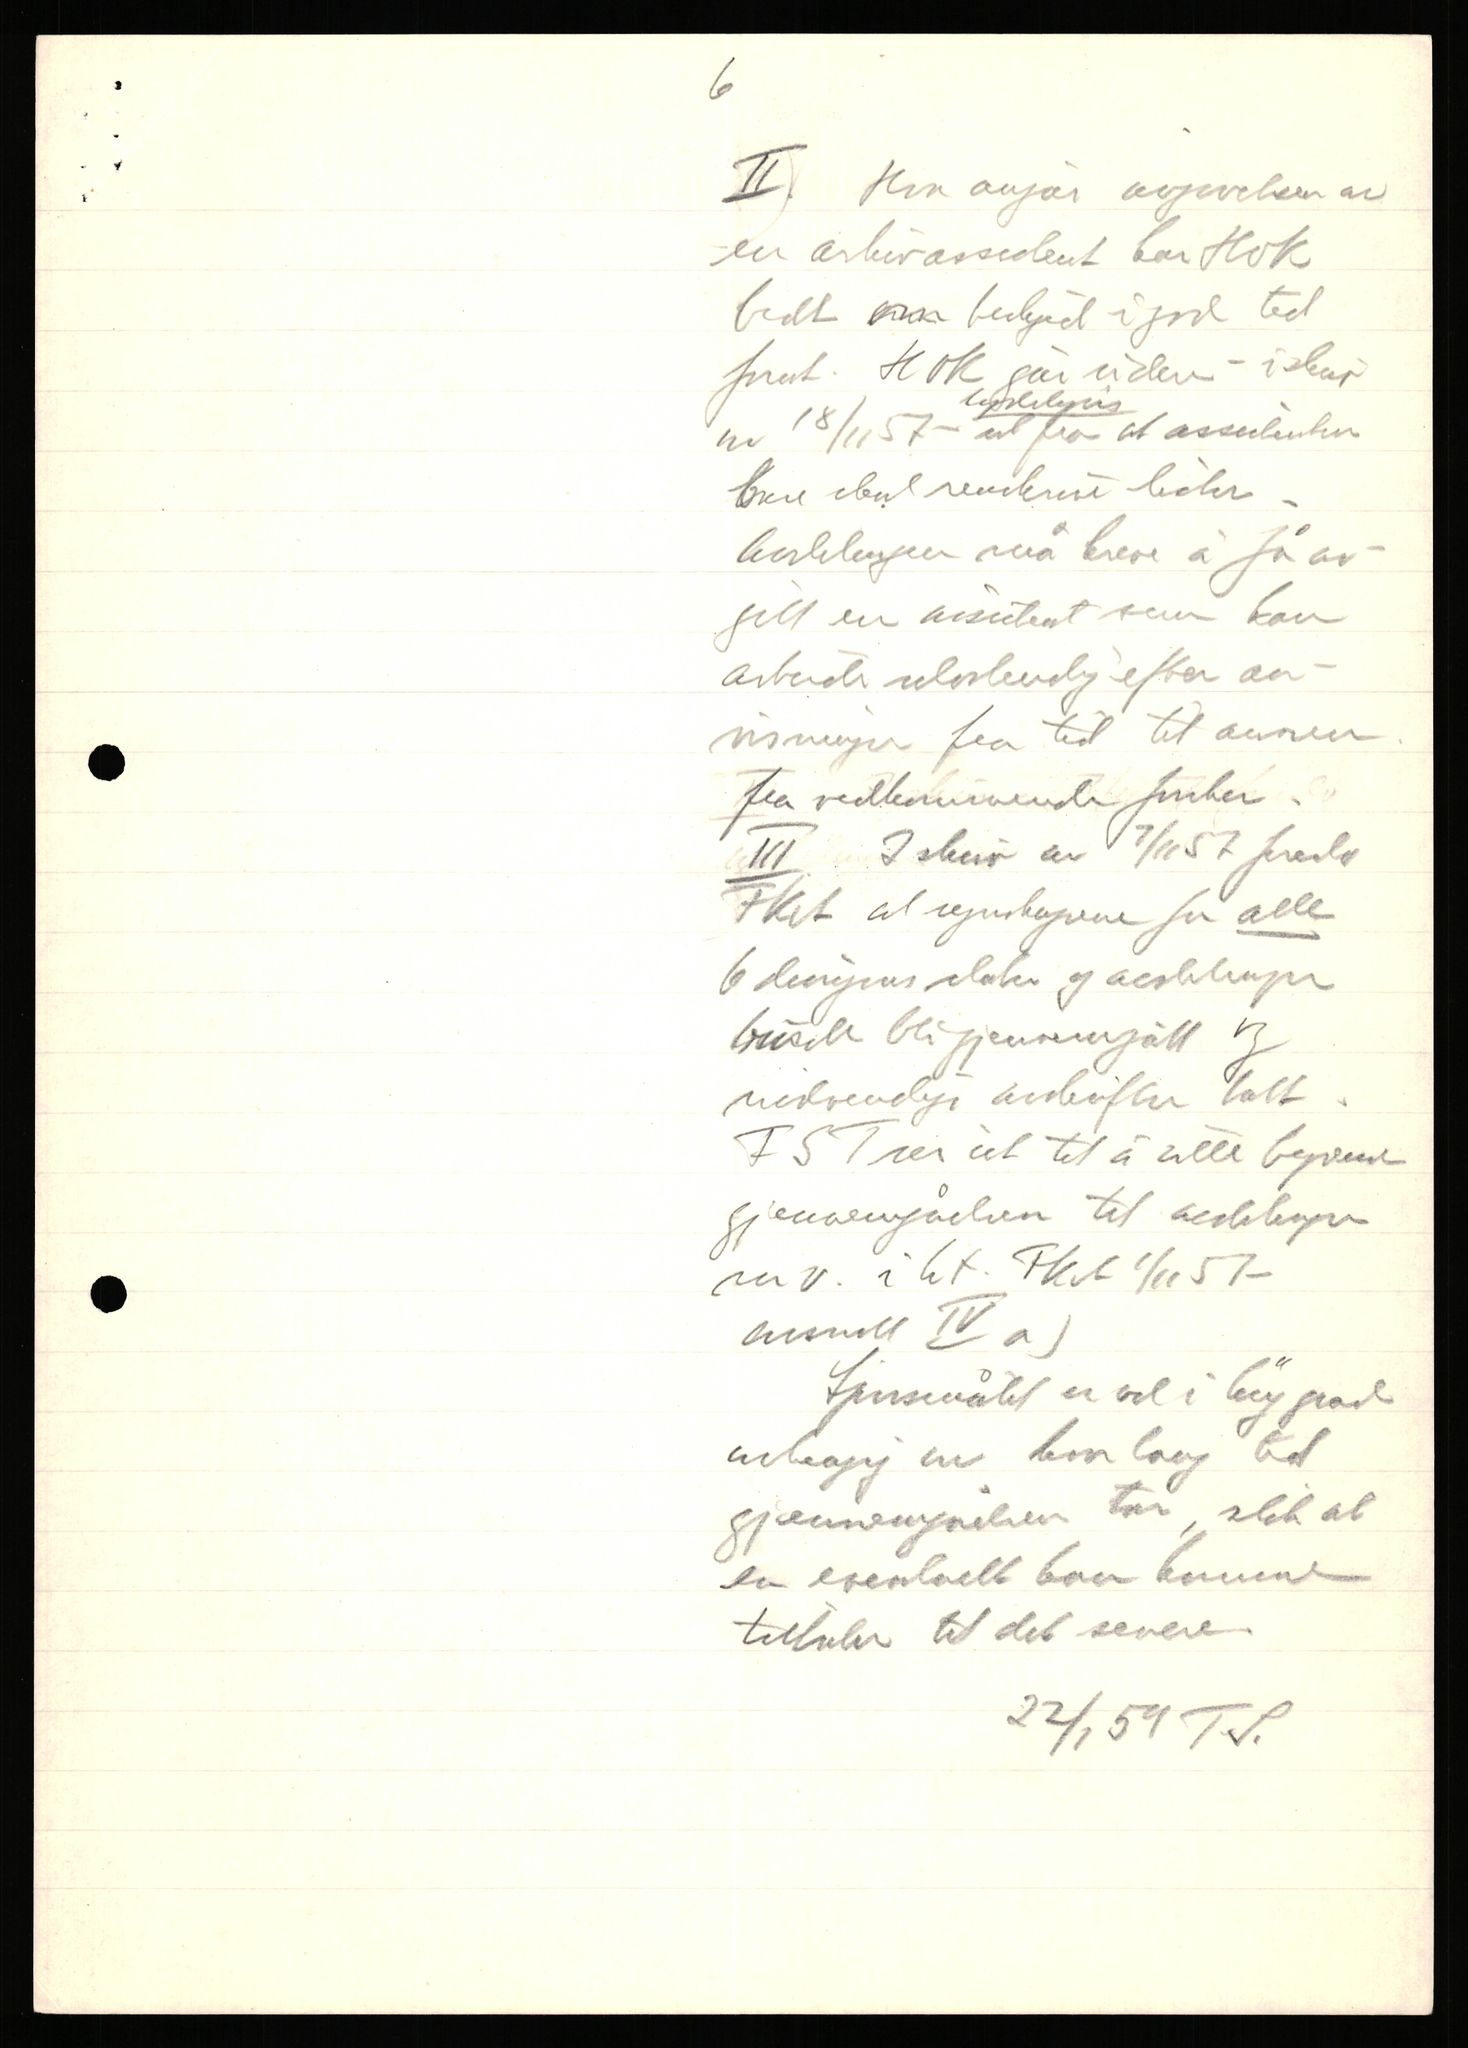 6
II). Hva angår avgivelsen av
en arkivassistent har HOK
bedt om beskjed i god tid
forut. HOK går videre - i skriv
av 18/11 57 - tydeligvis ut fra at assistenten
bare skal renskrive lister -
Avdelingen må kreve å få av-
gitt en assistent som kan
arbeide selvstendig efter an-
visninger fra tid til annen
fra vedkommende forsker.
III I skriv av 7/11 57 foreslo
FKst at regnskapene for alle
6 divisjons staber og avdelinger
burde bli gjennemgått og
nødvendige avskrifter tatt.
FST ser ut til å ville begrense
gjennemgåelsen til avdelinger
m.v. i h.t. FKst 1/11 57
avsnitt IV a)
Spørsmålet er vel i høy grad
avhengig av hvor lang tid
gjennemgåelsen tar, slik at
en eventuelt kan komme
tilbake til det senere.
22/1 59 T.S.